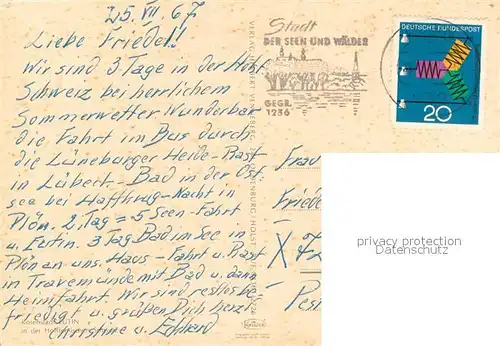 25. VII. 67
Liebe Friedel!
Wir sind 3 Tage in der Holst
Schweiz bei herrlichem
Sommerwetter. Wunderbar
die Fahrt im Bus durch
die Lüneburger Heide-Rast
in Lübeck.-Bad in der Ost
see bei Haffkrug-Nacht in
Plön. 2. Tag = 5 Seen-Fahrt
u. Eutin. 3 Tag Bad im See in
Plön an uns. Haus-Fahrt u. Rast
in Travemünde mit Bad u. dann
Heimfahrt. Wir sind restlos be
friedigt u. grüßen Dich herzl.
Christine u. Eckhard
Stadt
DER SEEN UND WÄLDER
GEGR.
1236
DEUTSCHE BUNDESPOST
20
Frau
Friede
privacy protection
Datenschutz
EUTIN
in der